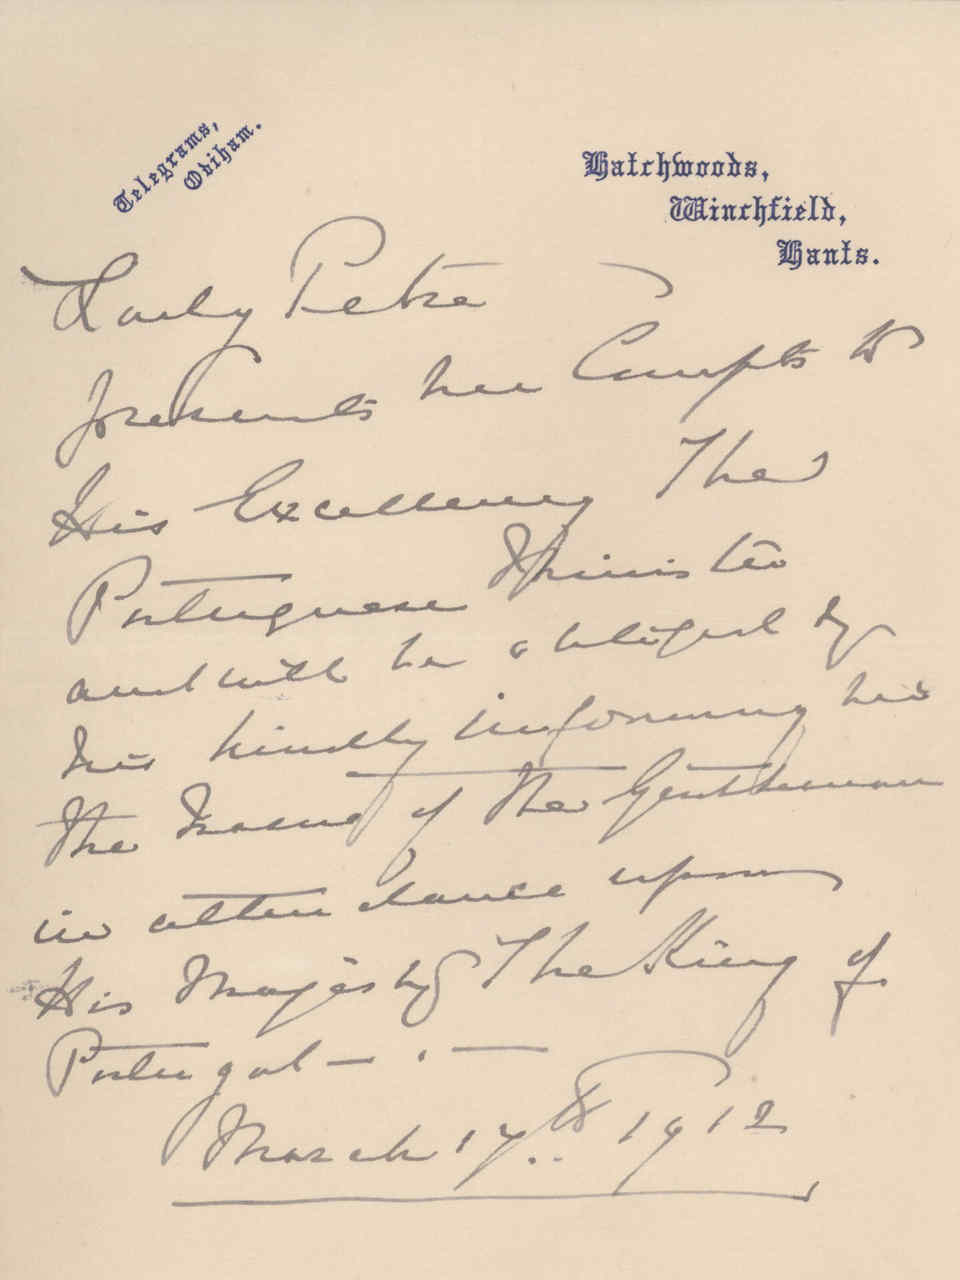 Telegrams,
Odiham.
Hatchwoods,
Winchfield,
Hants.
Lady Petre
presents her Compts to
His Excellency The
Portuguese Minister
and will be obliged by
his kindly informing her
the name of the Gentleman
in attendance upon
His Majesty The King of
Portugal — . —
March 17th.. 1912